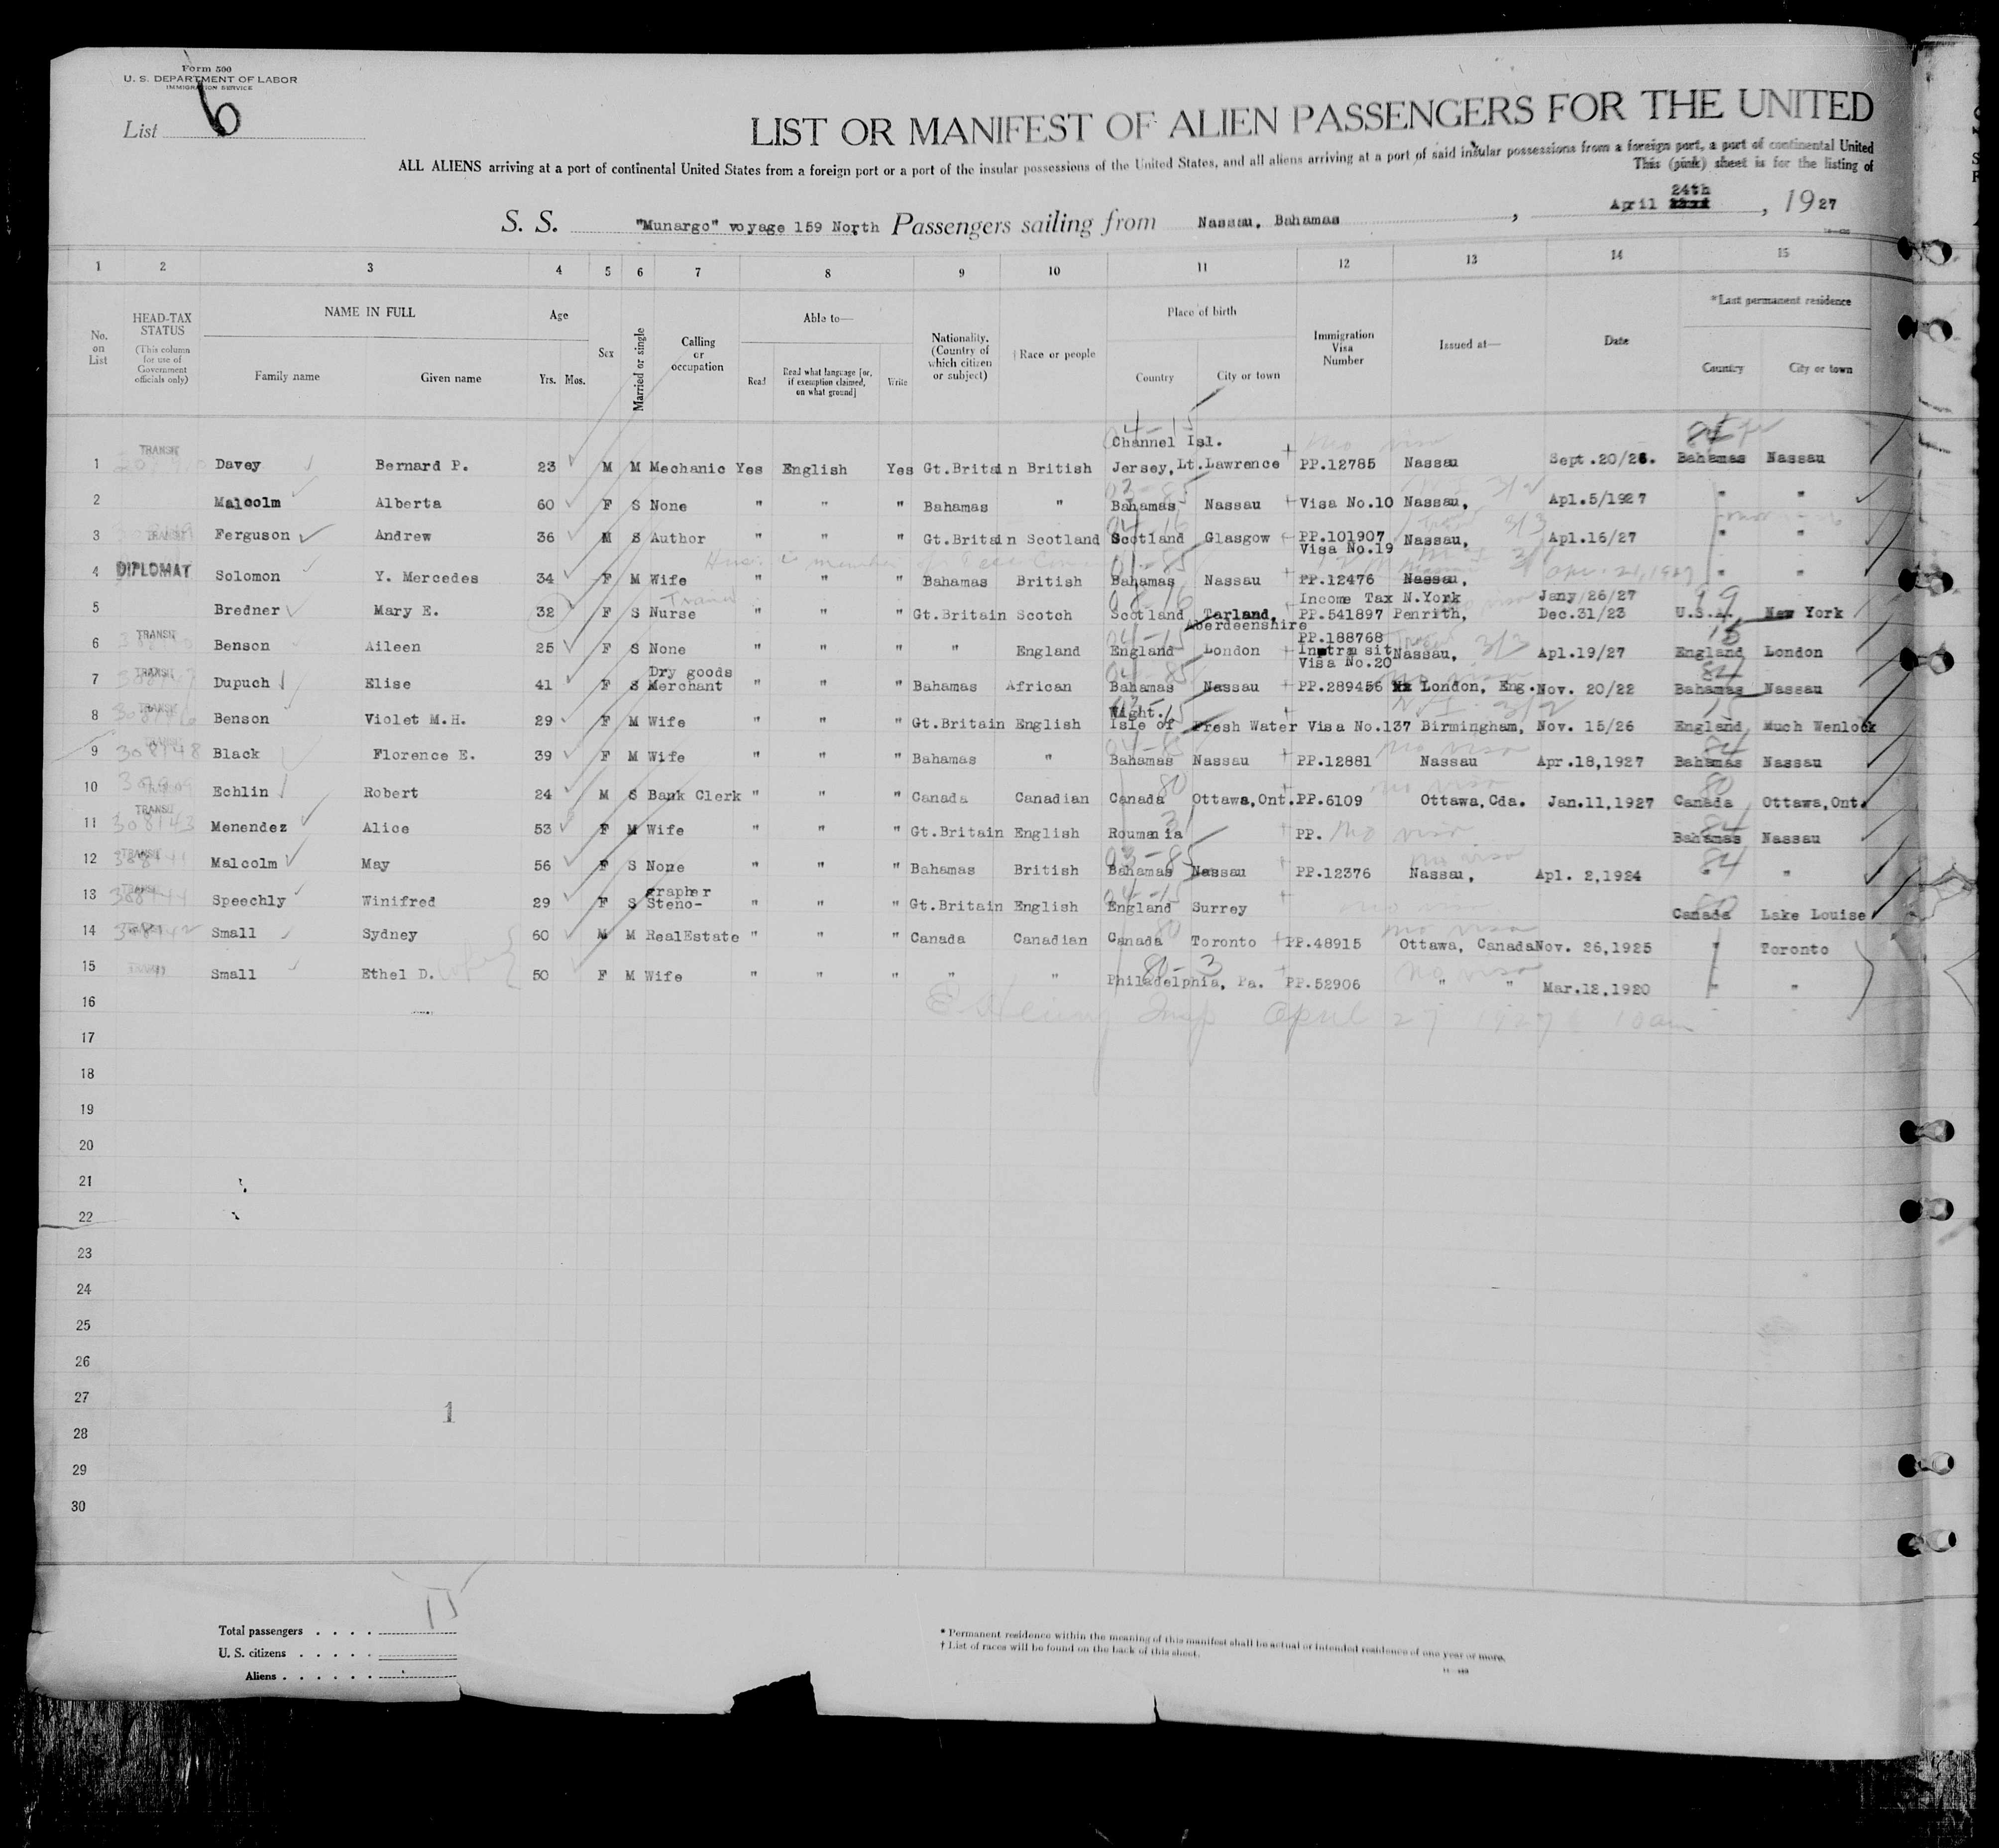 Form 500
U. S. DEPARTMENT OF LABOR
IMMIGRATION SERVICE
List 6
LIST OR MANIFEST OF ALIEN PASSENGERS FOR THE UNITED
ALL ALIENS arriving at a port of continental United States from a foreign port or a port of the insular possessions of the United States, and all aliens arriving at a port of said insular possessions from a foreign port, a port of continental United
This (pink) sheet is for the listing of
S. S. "Munargo" voyage 159 North Passengers sailing from Nassau, Bahamas, April 24th, 1927
1 2 3 4 5 6 7 8 9 10 11 12 13 14 15
No. on List
HEAD-TAX STATUS (This column for use of Government officials only)
NAME IN FULL
Family name Given name
Age
Yrs. Mos.
Sex
Married or single
Calling or occupation
Able to—
Read Read what language [or, if exemption claimed, on what ground] Write
Nationality. (Country of which citizen or subject)
† Race or people
Place of birth
Country City or town
Immigration Visa Number
Issued at—
Date
*Last permanent residence
Country City or town
1 TRANSIT Davey Bernard P. 23 M M Mechanic Yes English Yes Gt.Britain British Channel Isl. Jersey, Lt.Lawrence PP.12785 no visa Nassau Sept.20/26. Bahamas Nassau
2 Malcolm Alberta 60 F S None " " " Bahamas " Bahamas Nassau Visa No.10 Nassau, Apl.5/1927 " "
3 TRANSIT Ferguson Andrew 36 M S Author " " " Gt.Britain Scotland Scotland Glasgow PP.101907 Visa No.19 Nassau, Apl.16/27 " "
4 DIPLOMAT Solomon Y. Mercedes 34 F M Wife " " " Bahamas British Bahamas Nassau PP.12476 Nassau, Apr. 21, 1927 " "
5 Bredner Mary E. 32 F S Nurse " " " Gt.Britain Scotch Scotland Tarland, Aberdeenshire Income Tax N.York Jany/26/27 PP.541897 Penrith, Dec.31/23 U.S.A. New York
6 TRANSIT Benson Aileen 25 F S None " " " " England England London PP.188768 In transit Visa No.20 Nassau, Apl.19/27 England London
7 TRANSIT Dupuch Elise 41 F S Dry goods Merchant " " " Bahamas African Bahamas Nassau PP.289456 London, Eng. Nov. 20/22 Bahamas Nassau
8 TRANSIT Benson Violet M.H. 29 F M Wife " " " Gt.Britain English Isle of Wight. Fresh Water Visa No.137 Birmingham, Nov. 15/26 England Much Wenlock
9 TRANSIT 308148 Black Florence E. 39 F M Wife " " " Bahamas " Bahamas Nassau PP.12881 no visa Nassau Apr.18,1927 Bahamas Nassau
10 Echlin Robert 24 M S Bank Clerk " " " Canada Canadian Canada Ottawa,Ont. PP.6109 no visa Ottawa,Cda. Jan.11,1927 Canada Ottawa,Ont.
11 TRANSIT 308143 Menendez Alice 53 F M Wife " " " Gt.Britain English Roumania PP. no visa Bahamas Nassau
12 TRANSIT Malcolm May 56 F S None " " " Bahamas British Bahamas Nassau PP.12376 no visa Nassau, Apl. 2,1924 " "
13 TRANSIT 308144 Speechly Winifred 29 F S Stenographer " " " Gt.Britain English England Surrey no visa Canada Lake Louise
14 TRANSIT 308142 Small Sydney 60 M M RealEstate " " " Canada Canadian Canada Toronto PP.48915 no visa Ottawa, Canada Nov. 26,1925 " Toronto
15 TRANSIT Small Ethel D. wife 50 F M Wife " " " " " Philadelphia, Pa. PP.52906 no visa " " Mar.12,1920 " "
16 April 27 1927 10am
17
18
19
20
21
22
23
24
25
26
27
28
29
30
1
Total passengers . . . . 15
U. S. citizens . . . . .
Aliens . . . . . .
* Permanent residence within the meaning of this manifest shall be actual or intended residence of one year or more.
† List of races will be found on the back of this sheet.